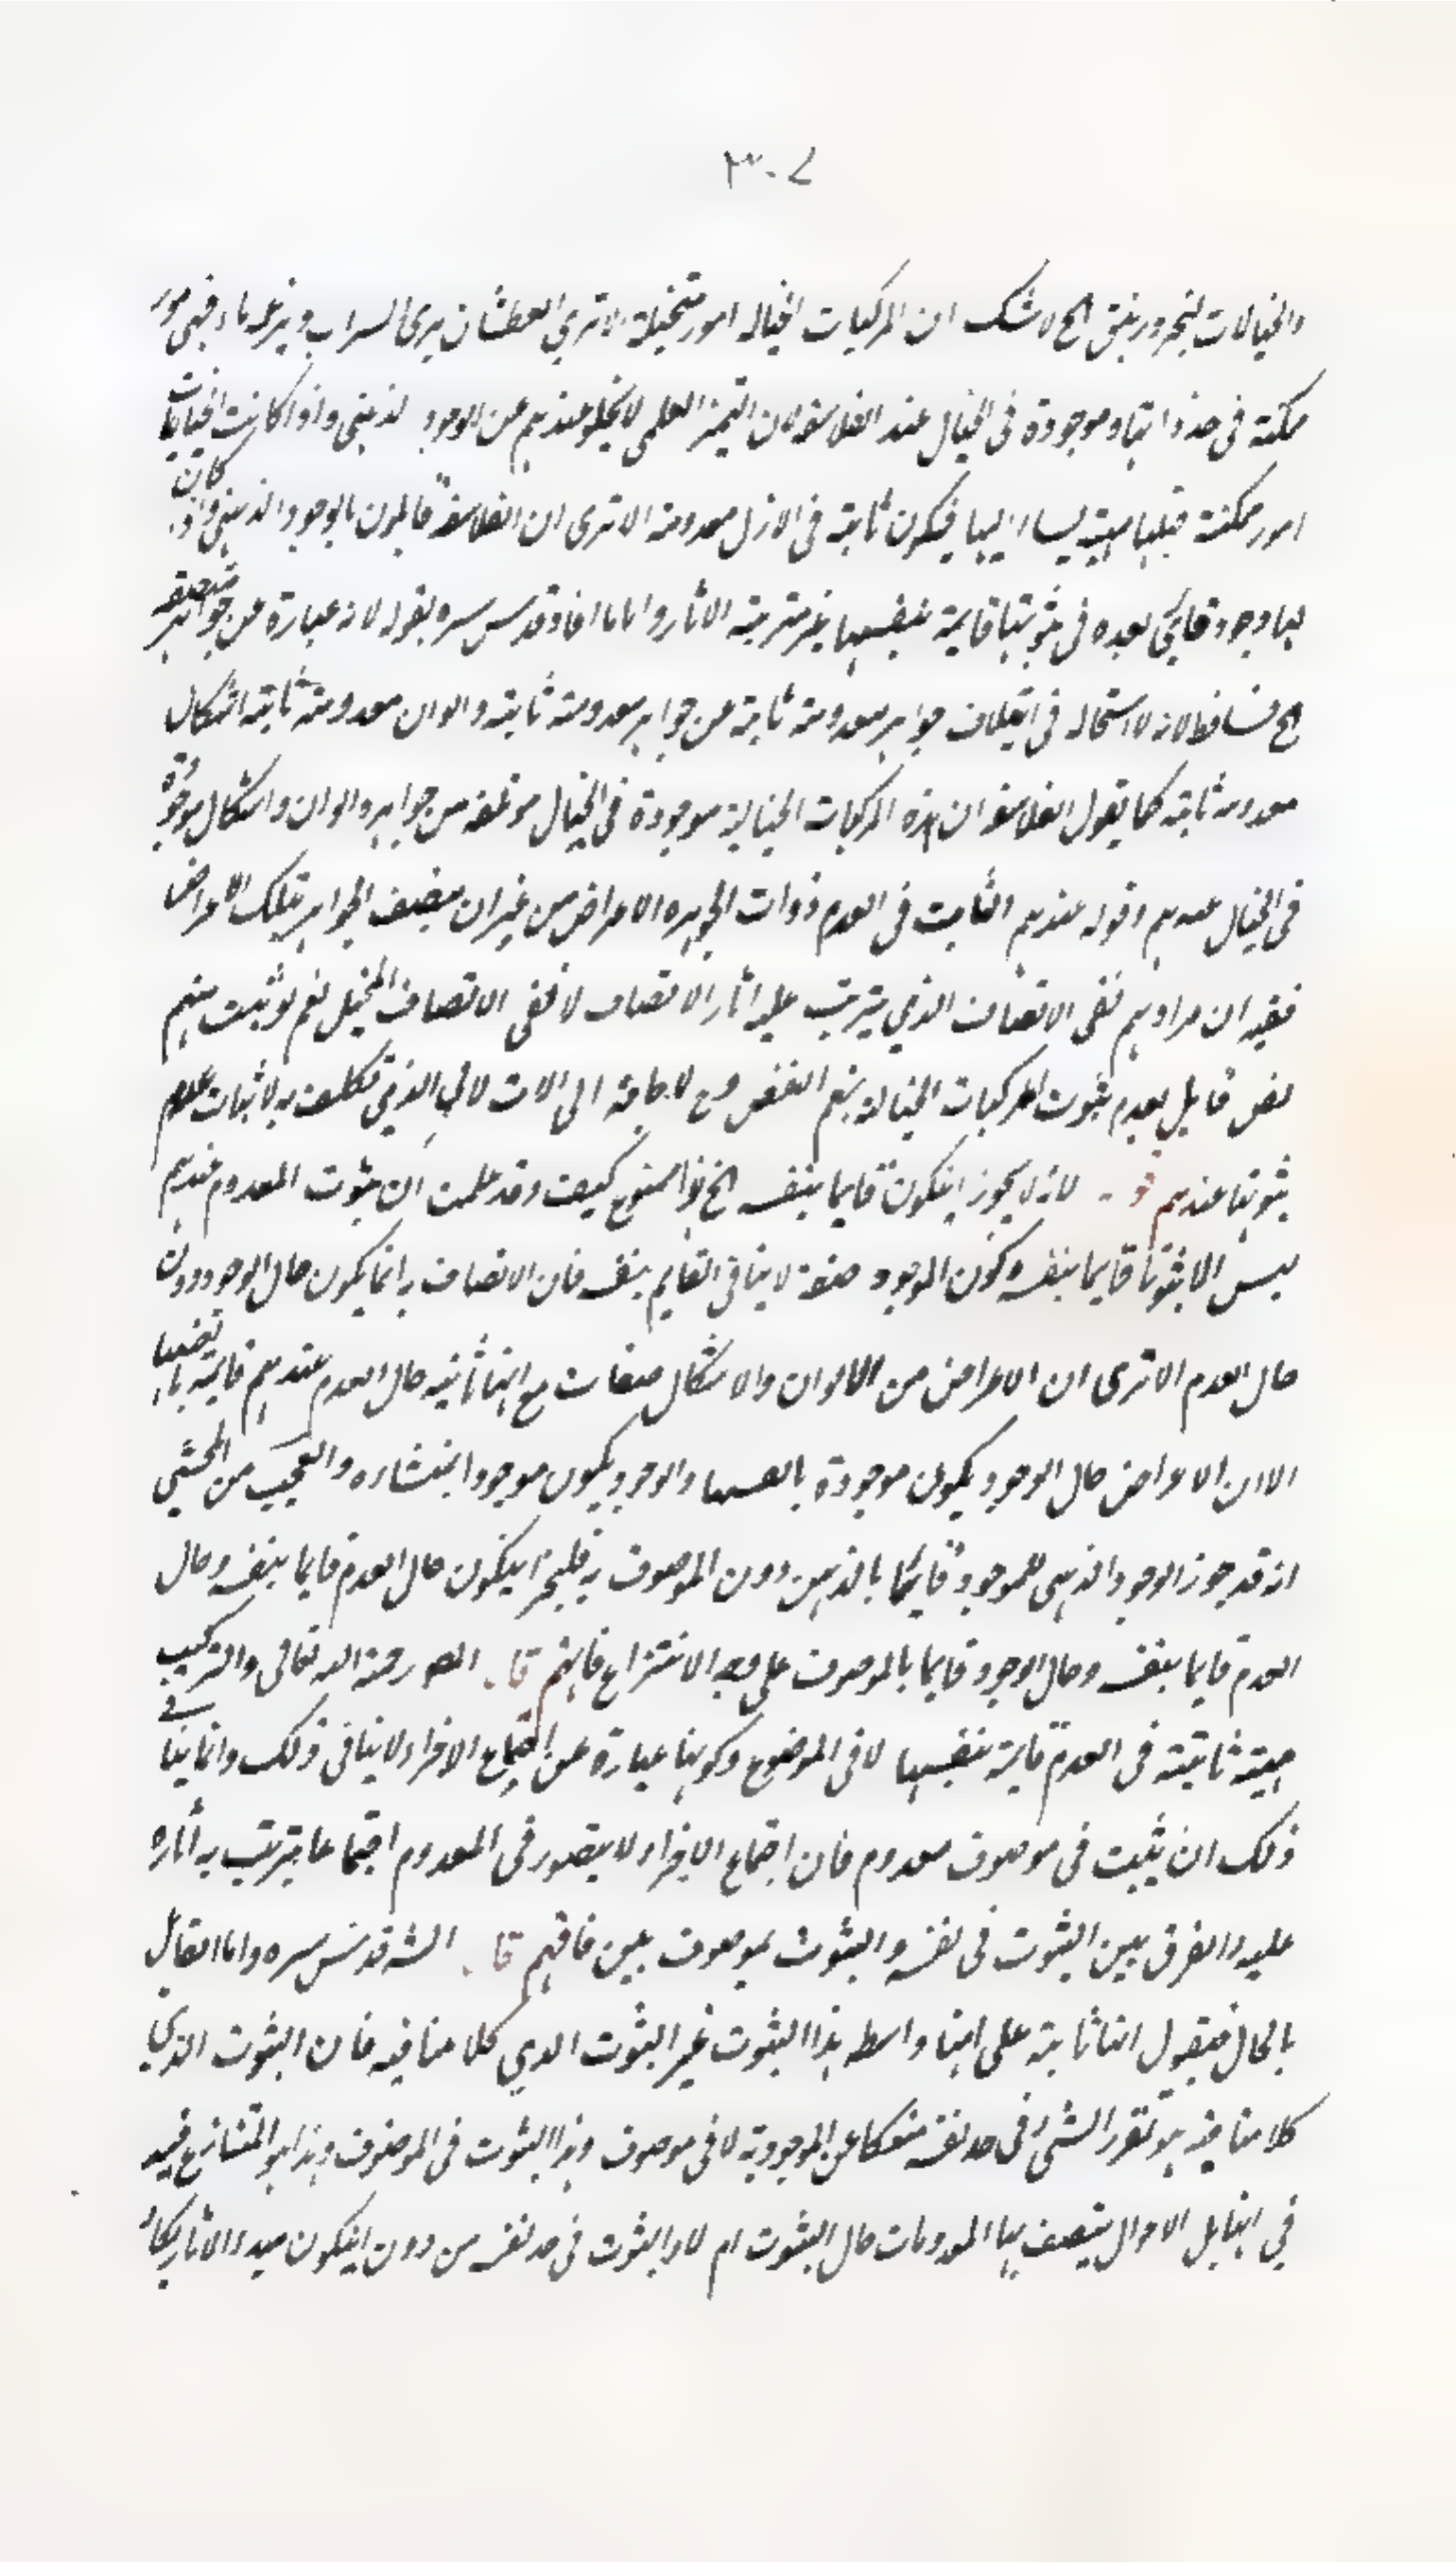 ٣٠٧
والخيالات لتجرد ريبق الخ لا شك ان المركبات الخياله امور متخيلة الا تري العطشان يرى السراب ويزعمه ماء فهي امور
ممكنة في حد ذاتها وموجودة في الخيال عند الفلاسفة لان التميز العلمي لا يخلو عندهم عن الوجود لذهني واذا كانت الخياليات
امور ممكنة قبلها هيئة فيكون ثابتة في الازل معدومة الا ترى ان الفلاسفة قايلون بالوجود الذهني واذ كان
لها وجود في ثبوتها قايمة بنفسها غير مترتبة الاثار واما ما افاد قدس سره بقوله لانه عبارة عن جواهر متصفة
الخ فساقط لانه لا استحاله في ايتلاف جواهر معدومة ثابتة عن جواهر معدومة ثابتة والوان معدومة ثابتة اشكال
معدومة ثابتة كما يقول الفلاسفة ان هذه المركبات الخيالية موجودة في الخيال مؤتلفة من جواهر والوان واشكال موجودة
في الخيال عندهم وقوله عندهم الثابت في العدم ذوات الجواهر والاعراض من غير ان يتصف الجواهر بتلك الاعراض
ففيه ان مرادهم نفي الاتصاف الذي يترتب عليه اثار الاتصاف لا نفي الاتصاف المخيل نعم لو ثبت منهم
نص قايل بعدم ثبوت المركبات الخيالة يتم النقض وح لا حاجة الى الاستدلال الذي تكلف به لاثبات عدم
ثبوتها عندهم قو لانه لا يجوز ان يكون قايما بنفسه الخ هذا ممنوع كيف وقد علمت ان ثبوت المعدوم عندهم
ليس الا ثبوتا قايما بنفسه وكون الوجود صفة لا ينافي القايم بنفسه فان الاتصاف به انما يكون حال الوجود دون
حال العدم الا ترى ان الاعراض من الالوان والاشكال صفات مع انها ثابتة حال العدم عندهم قايمة بانفسها
الا ان الاعراض حال الوجود يكون موجودة بانفسها والوجود يكون موجودا بمنشاءه والعجب من المحشي
انه قد جوز الوجود الذهني للموجود قايما بالذهن دون الموصوف به فليجز ان يكون حال العدم قايما بنفسه وحال
العدم قايما بنفسه وحال الوجود قايما بالموصوف على وجه الانتزاع فافهم قا المص رحمة الله تعالى والتركيب
هيئة ثابتة في العدم قايمة بنفسها لا في الموضوع وكونها عبارة عن اجتماع الافراد لا ينافي ذلك وانما ينافي
ذلك ان يثبت في موصوف معدوم فان اجتماع الافراد لا يتصور في المعدوم اجتماعا يترتب به آثاره
عليه والفرق بين الثبوت في نفسه والثبوت لموصوف بين فافهم قا الش قدس سره واما القايل
بالحال فيقول انها ثابتة على انها واسطه هذا الثبوت غير الثبوت الذي كلامنا فيه فان الثبوت الذي
كلامنا فيه هو تقرر الشئ في حد نفسه منفكا عن الموجودية لا في موصوف وهذا الثبوت في الموصوف وهذا هو المتنازع فيه
في انها هل الاحوال يتصف بها المعدومات حال الثبوت ام لا والثبوت في حد نفسه من دون ان يكون مبدء الاثار